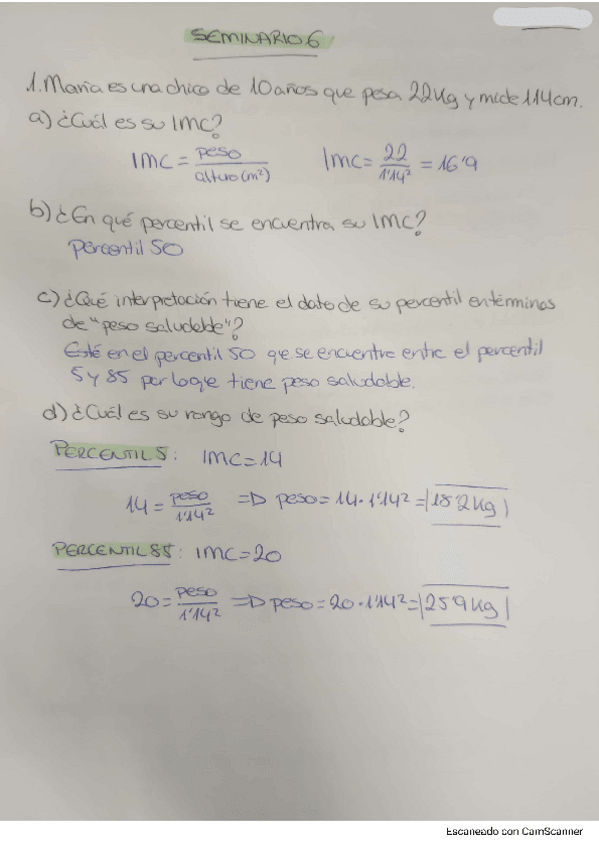 SEMINARIO 6
1. María es una chica de 10 años que pesa 22Kg y mide 114cm.
a) ¿Cuál es su IMC?
IMC = peso / altura (m²) IMC = 22 / 1'14² = 16'9
b) ¿En qué percentil se encuentra su IMC?
Percentil 50
c) ¿Qué interpretación tiene el dato de su percentil en términos
de "peso saludable"?
Está en el percentil 50 que se encuentra entre el percentil
5 y 85 por lo que tiene peso saludable.
d) ¿Cuál es su rango de peso saludable?
PERCENTIL 5: IMC = 14
14 = peso / 1'14² => peso = 14 · 1'14² = 18'2 Kg
PERCENTIL 85: IMC = 20
20 = peso / 1'14² => peso = 20 · 1'14² = 25'9 Kg
Escaneado con CamScanner